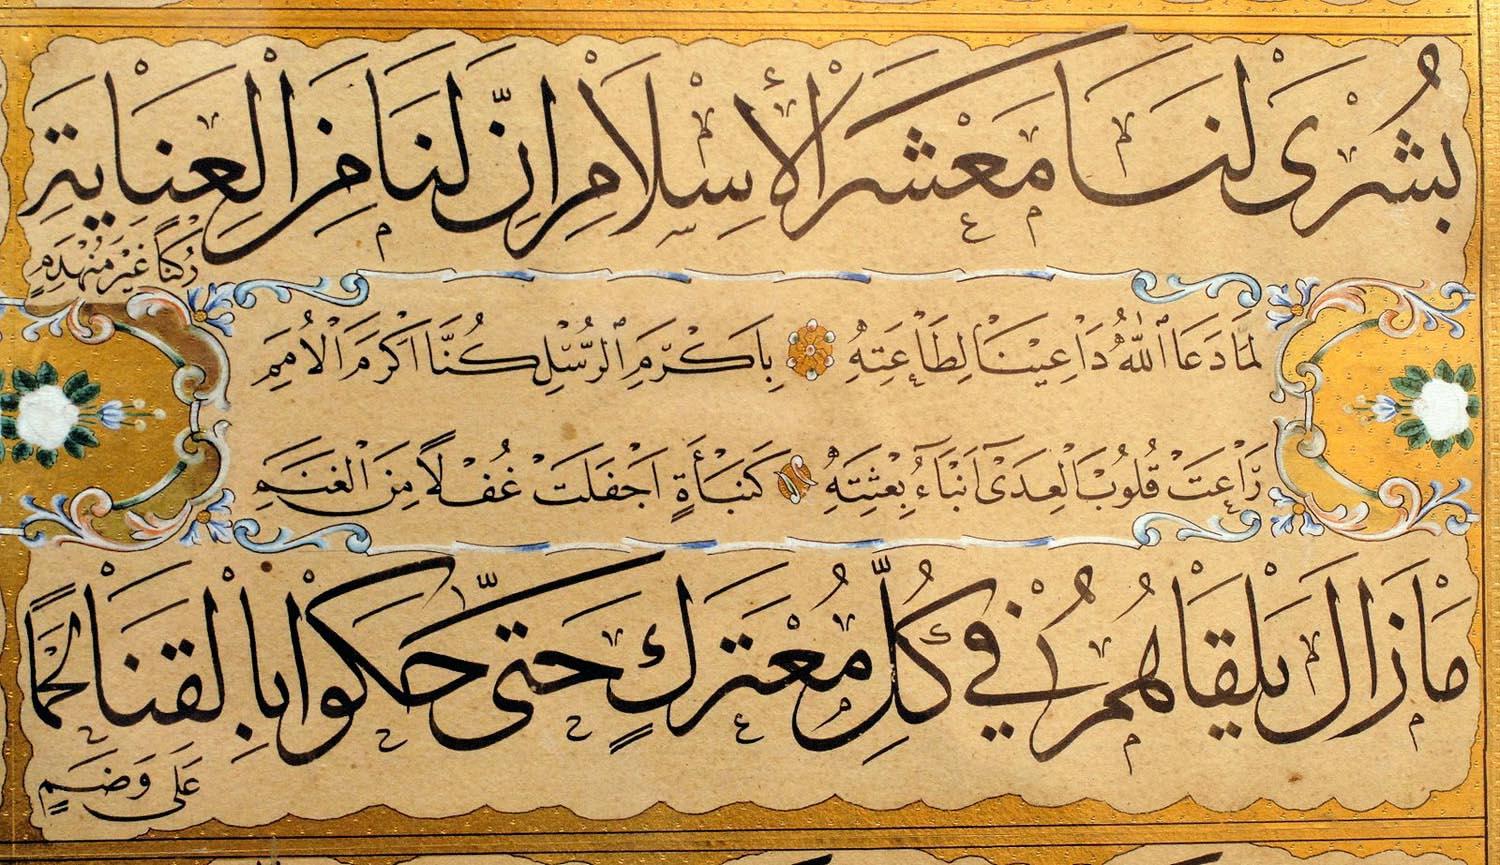 بُشْرَى لَنَا مَعْشَرَ الْأِسْلَامِ اِنَّ لَنَا مِنَ الْعِنَايَةِ
رُكْنًا غَيْرَ مُنْهَدِمٍ
لَمَّا دَعَا اللّٰهُ دَاعِينَا لِطَاعَتِهِ بِاَكْرَمِ الرُّسْلِ كُنَّا اَكْرَمَ الْاُمَمِ
رَاعَتْ قُلُوبَ الْعِدَى اَنْبَاءُ بِعْثَتِهِ كَنَبْأَةٍ اَجْفَلَتْ غُفْلًا مِنَ الْغَنَمِ
مَا زَالَ يَلْقَاهُمُ فِي كُلِّ مُعْتَرَكٍ حَتَّى حَكَوْا بِالْقَنَا لَحْمًا
عَلَى وَضَمٍ